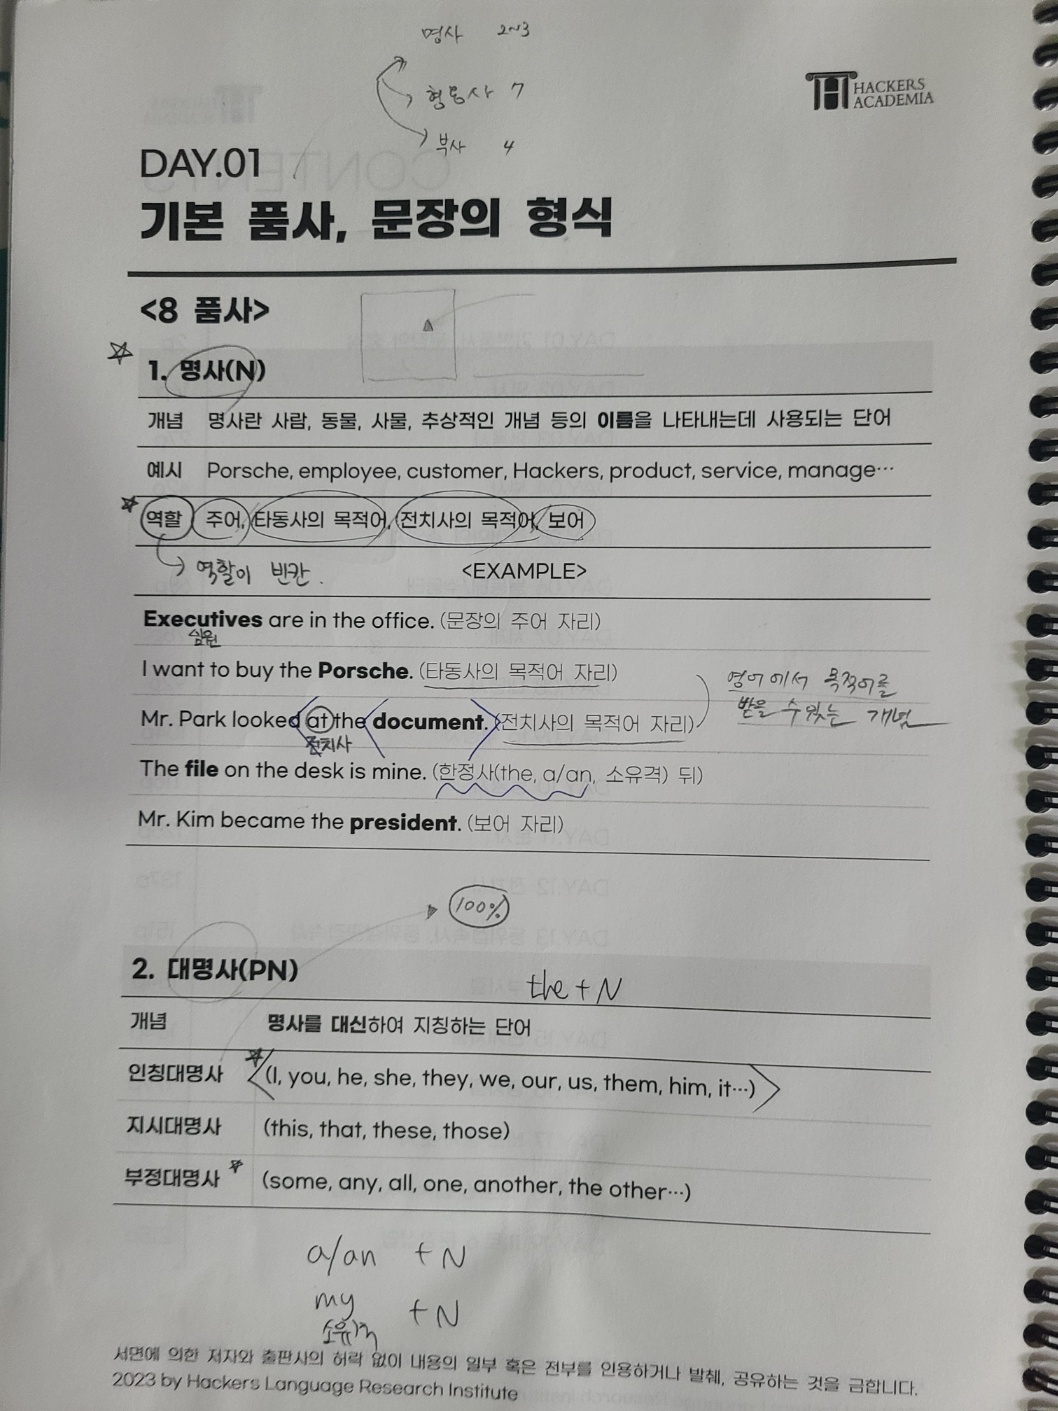 명사 2~3
형용사 7
부사 4
HACKERS
ACADEMIA
DAY.01
기본 품사, 문장의 형식
<8 품사>
☆ 1. 명사(N)
개념 명사란 사람, 동물, 사물, 추상적인 개념 등의 이름을 나타내는데 사용되는 단어
예시 Porsche, employee, customer, Hackers, product, service, manage…
☆ 역할 주어, 타동사의 목적어, 전치사의 목적어, 보어
→ 역할이 빈칸.
<EXAMPLE>
Executives are in the office. (문장의 주어 자리)
임원
I want to buy the Porsche. (타동사의 목적어 자리)
영어에서 목적어를
받을 수 있는 개념
Mr. Park looked at the document. (전치사의 목적어 자리)
전치사
The file on the desk is mine. (한정사(the, a/an, 소유격) 뒤)
Mr. Kim became the president. (보어 자리)
100%
2. 대명사(PN)
the + N
개념 명사를 대신하여 지칭하는 단어
인칭대명사 ☆ (I, you, he, she, they, we, our, us, them, him, it…)
지시대명사 (this, that, these, those)
부정대명사 ☆ (some, any, all, one, another, the other…)
a/an + N
my + N
소유격
서면에 의한 저자와 출판사의 허락 없이 내용의 일부 혹은 전부를 인용하거나 발췌, 공유하는 것을 금합니다.
2023 by Hackers Language Research Institute